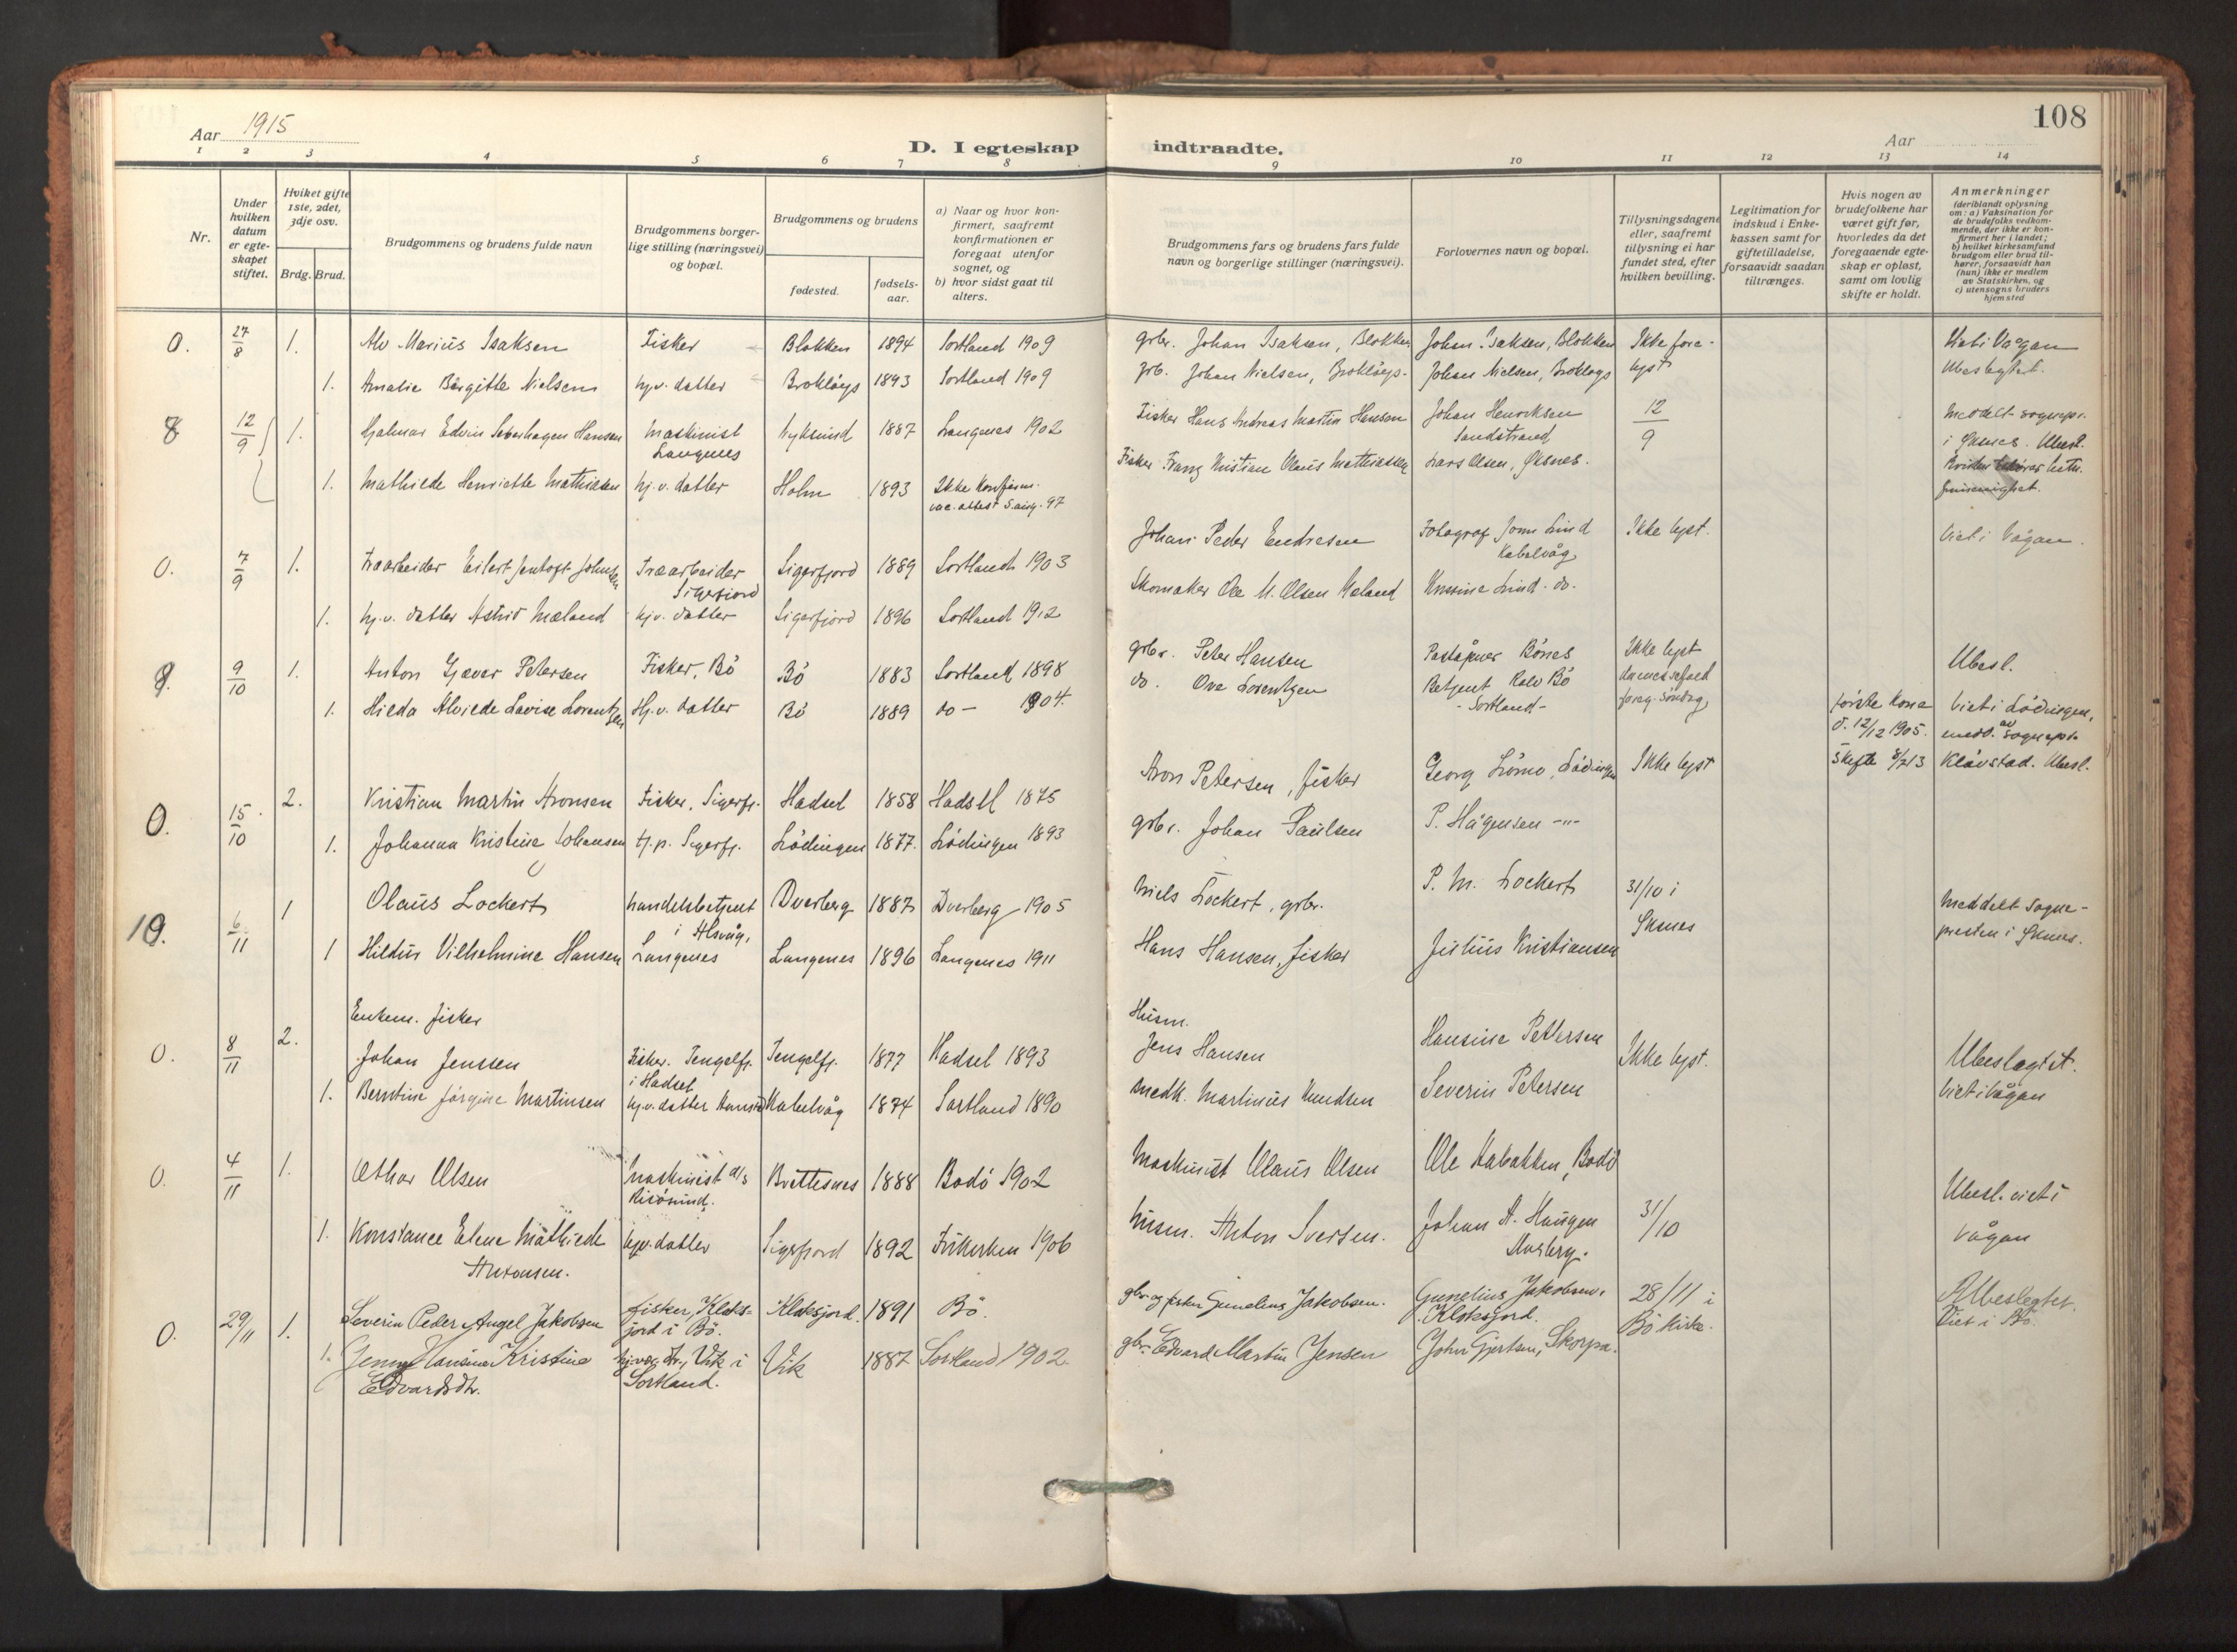 108
Aar 1915
D. I egteskap indtraadte.
Aar
1 2 3 4 5 6 7 8 9 10 11 12 13 14
Nr.
Under hvilken datum er egteskapet stiftet.
Hvilket gifte 1ste, 2det, 3dje osv.
Brdg. Brud.
Brudgommens og brudens fulde navn
Brudgommens borgerlige stilling (næringsvei) og bopæl.
Brudgommens og brudens
fødested.
fødselsaar.
a) Naar og hvor konfirmert, saafremt konfirmationen er foregaat utenfor sognet, og
b) hvor sidst gaat til alters.
Brudgommens fars og brudens fars fulde navn og borgerlige stillinger (næringsvei).
Forlovernes navn og bopæl.
Tillysningsdagene eller, saafremt tillysning ei har fundet sted, efter hvilken bevilling.
Legitimation for indskud i Enkekassen samt for giftetilladelse, forsaavidt saadan tiltrænges.
Hvis nogen av brudefolkene har været gift før, hvorledes da det foregaaende egteskap er opløst, samt om lovlig skifte er holdt.
Anmerkninger (deriblandt oplysning om: a) Vaksination for de brudefolks vedkommende, der ikke er konfirmert her i landet; b) hvilket kirkesamfund brudgom eller brud tilhører, forsaavidt han (hun) ikke er medlem av Statskirken, og c) utensogns bruders hjemsted
0. 27/8 1. Alv Marius Isaksen Fisker Blokken 1894 Sortland 1909 grbr. Johan Isaksen, Blokken Johan Isaksen, Blokken Ikke forelyst Viet i Vågan
1. Amalie Birgitte Nielsen hj.v. datter Brokløys 1893 Sortland 1909 grb. Johan Nielsen, Brokløys Johan Nielsen, Brokløys Ubeslegtet.
8 12/9 1. Hjalmar Edvin Hansen Maskinist Langenes Nyksund 1887 Langenes 1902 Fisker Hans Andreas Martin Hansen Johan Henriksen Sandstrand 12/9 Meddelt sognepr. i Øksnes. Ubesl.
1. Mathilde Henriette Mathiasen hj.v. datter Holm 1893 Ikke konfirm. vac. attest 5 aug. 97 Fisker Franz Kristian Olaus Mathiassen Lars Olsen, Øksnes.
0. 7/9 1. Træarbeider Eilert Jentoft Johnsen Træarbeider Sigerfjord Sigerfjord 1889 Sortland 1903 Johan Peder Endresen Fotograf Lind Kabelvåg Ikke lyst. Viet i Vågan.
1. hj.v. datter Astrid Mæland hj.v. datter Sigerfjord 1896 Sortland 1912 Skomaker Ole M. Olsen Mæland Lind do.
9. 9/10 1. Anton Gjæver Petersen Fisker, Bø Bø 1883 Sortland 1898 grbr. Peter Hansen Poståpner Bønes Ikke lyst Ubesl.
1. Hilda Alvilde Lovise Lorentzen Hj.v. datter Bø 1889 do - 1904. do. Ove Lorentzen Betjent Rolv Bø - Sortland - foreg. søndag
0. 15/10 2. Kristian Martin Aronsen Fisker, Sigerfj. Hadsel 1858 Hadsel 1875 Aron Petersen, fisker Georg Lømo, Lødingen Ikke lyst første kone d. 12/12 1905. Skifte Viet i Lødingen, av sognepr. Klåvstad. Ubesl.
1. Johanna Kristine Johansen tj.p. Sigerfj. Lødingen 1877. Lødingen 1893 grbr. Johan Paulsen P. Hågensen -"-
10. 6/11 1 Olaus Lockert handelsbetjent i Alsvåg, Dverberg 1887 Dverberg 1905 Niels Lockert, grbr. P. M. Lockert 31/10 i Øksnes Meddelt sognepresten i Øksnes.
1 Hildur Vilhelmine Hansen Langenes Langenes 1896 Langenes 1911 Hans Hansen, fisker Julius Kristiansen
0. 8/11 2. Enkem. fisker Johan Jenssen Fisker. Tengelfj. i Hadsel Tengelfj. 1877 Hadsel 1893 Husm. Jens Hansen Hansine Pettersen Ikke lyst. Ubeslegtet.
1. Berntine Jørgine Martinsen hj.v. datter Kabelvåg 1874 Sortland 1890 Snedk. Martinus Knudsen Severin Petersen Viet i Vågan
0. 4/11 1. Othar Olsen Maskinist d/s Risøsund. Brettesnes 1888 Bodø 1902 Maskinist Olaus Olsen Ole Kabakken, Bodø Ubesl. viet i Vågan
1. Konstance Elene Mathilde Antonsen. hj.v. datter Sigerfjord 1892 1906 husm. Anton Iversen. Johan A. Haugen 31/10
0. 29/11 1. Severin Peder Angel Jakobsen fisker, Kloksjord i Bø. Kloksjord. 1891 Bø. gbr. og fisker Gunelius Jakobsen. Gunelius Jakobsen, Kloksjord. 28/11 i Bø kirke. Ubeslegtet. Viet i Bø.
1. Jenny Hansine Kristine Edvardsdtr. hjv. dtr., Vik i Sortland. Vik 1887 Sortland 1902. gbr. Edvard Martin Jensen John Gjertsen, Skorpa.